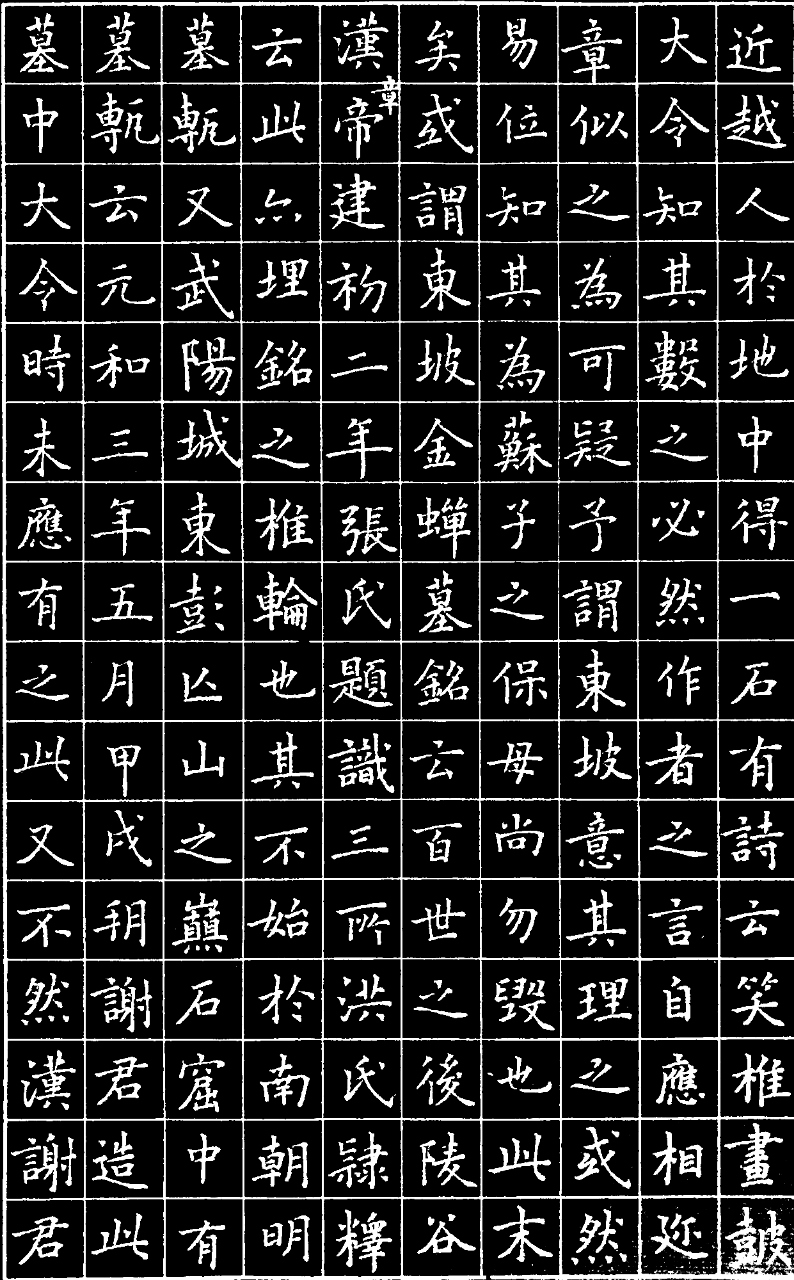 墓中大令時未應有之此又不然漢謝君
墓甎云元和三年五月甲戌朔謝君造此
墓甎又武陽城東彭亾山之巔石窟中有
云此亦埋銘之椎輪也其不始於南朝明
漢章帝建初二年張氏題識三所洪氏隸釋
矣或謂東坡金蟬墓銘云百世之後陵谷
易位知其為蘇子之保母尚勿毀也此末
章似之為可疑予謂東坡意其理之或然
大令知其數之必然作者之言自應相迩
近越人於地中得一石有詩云笑椎畫皷